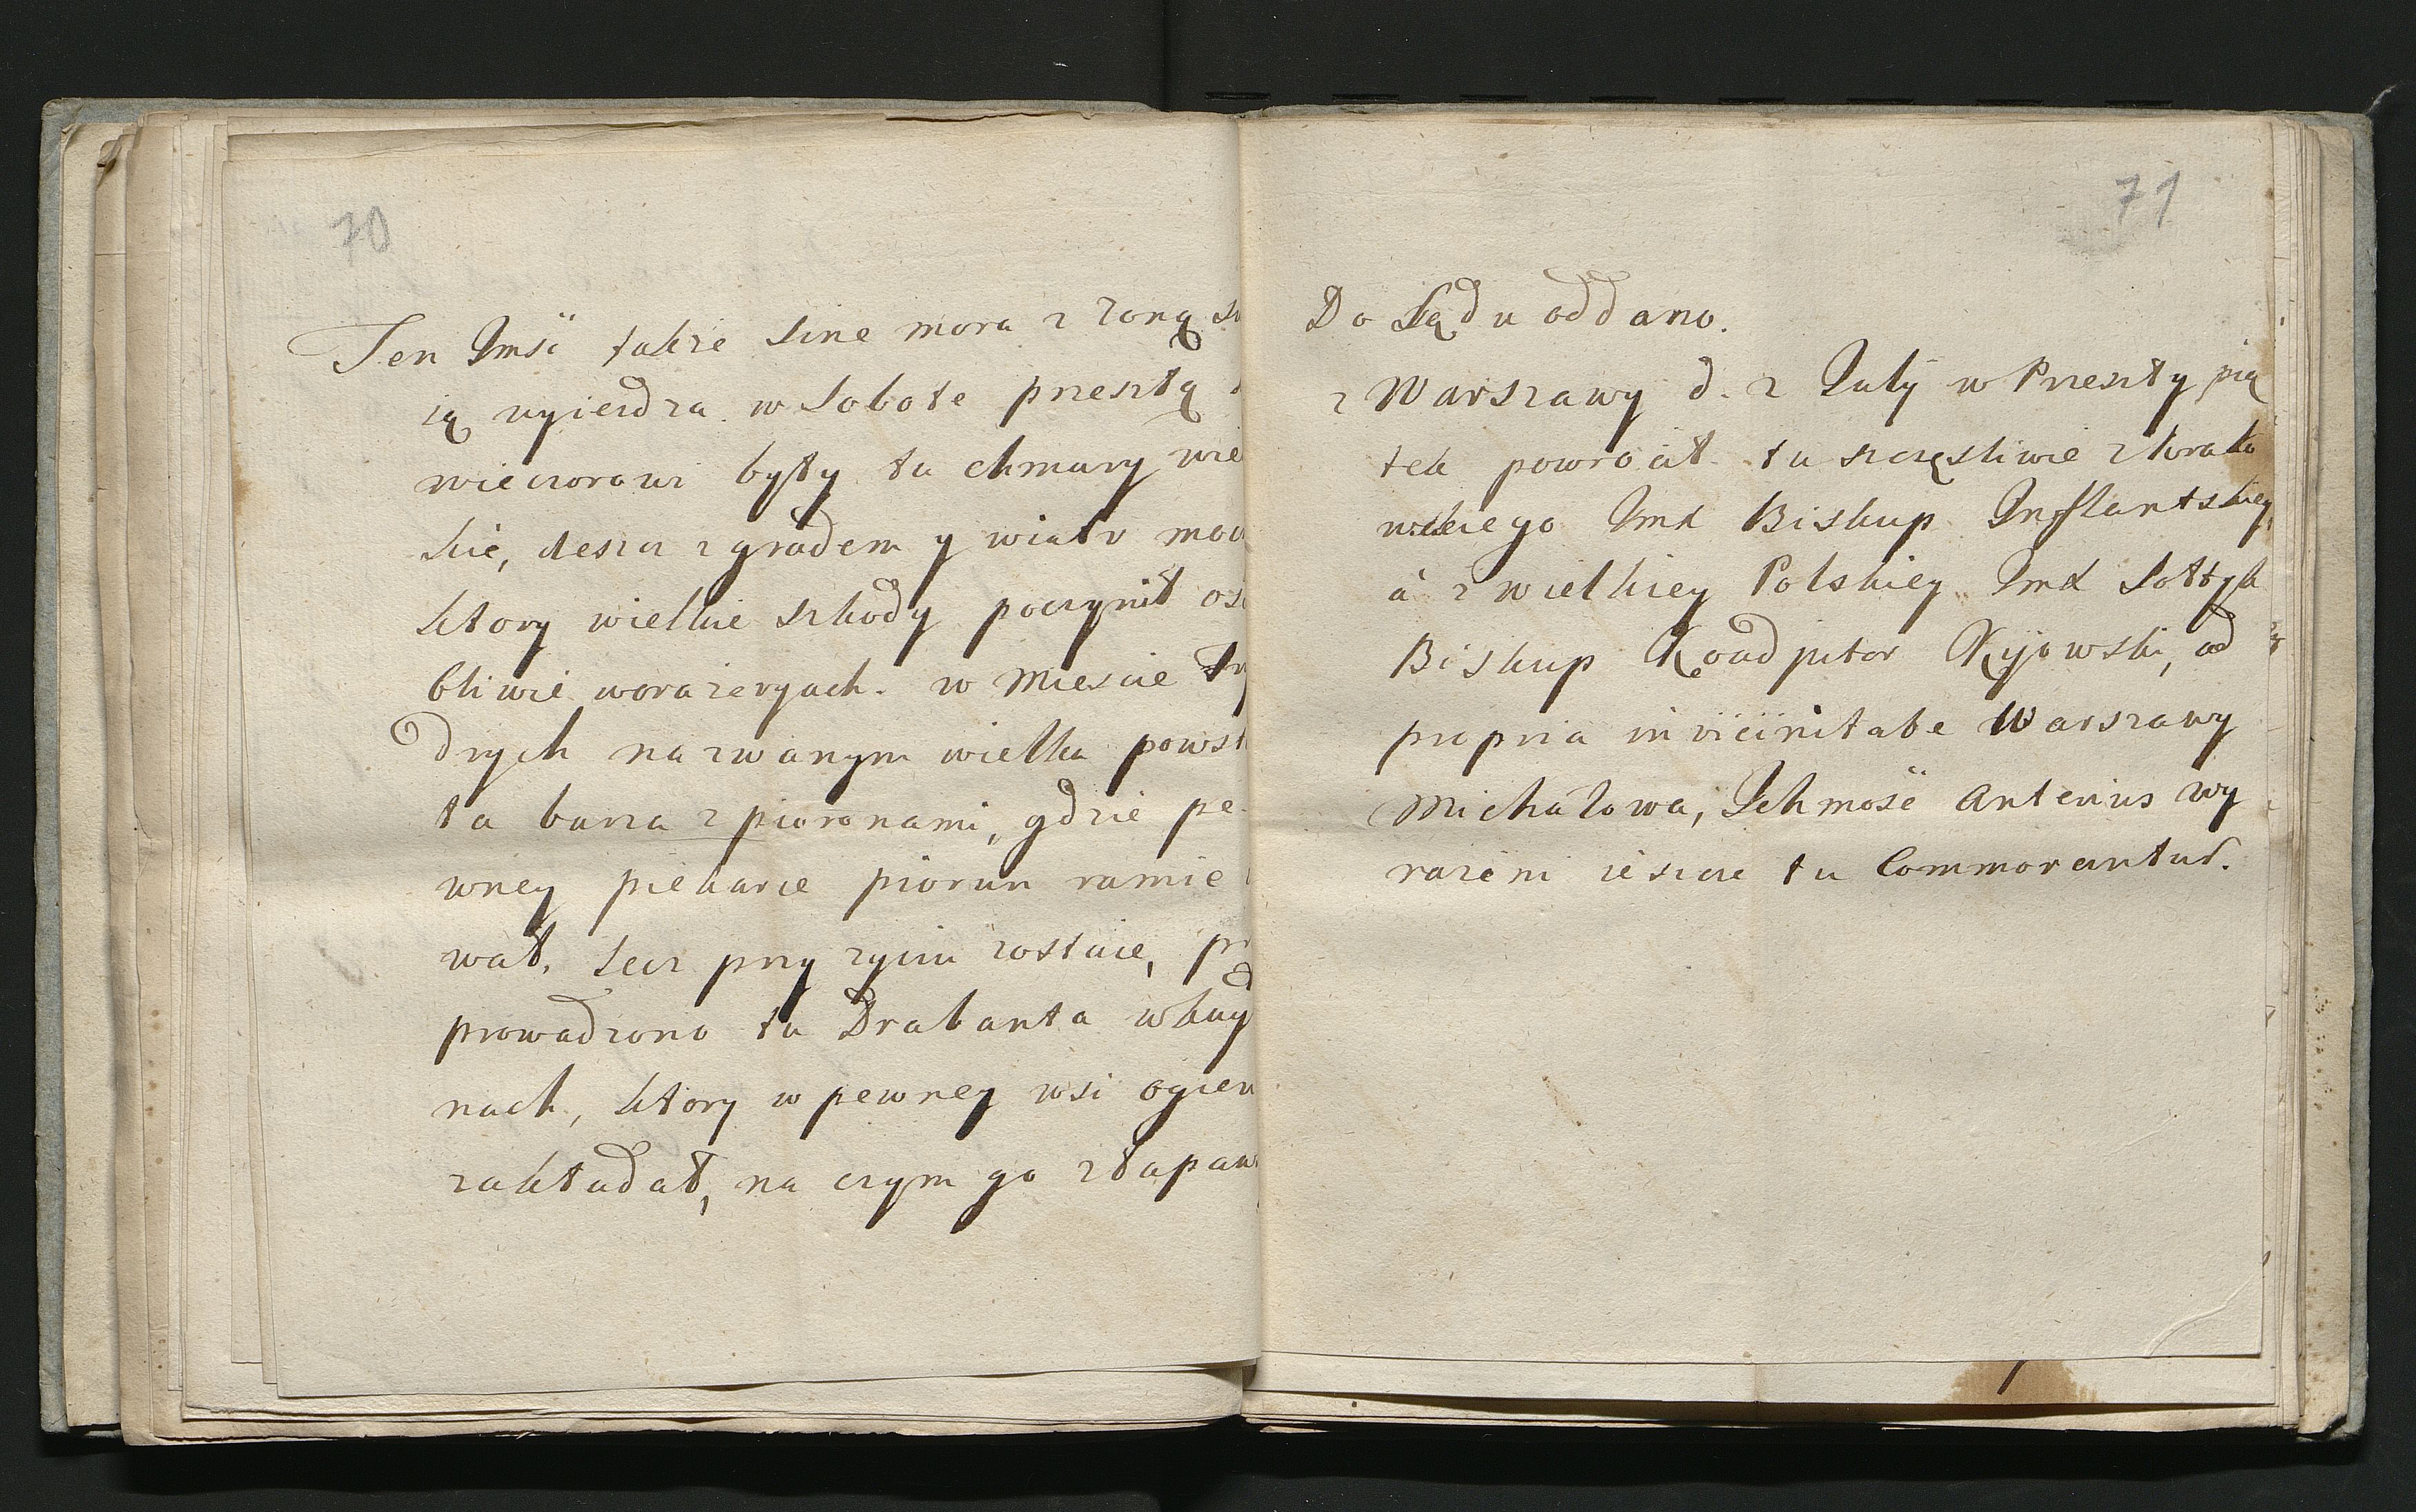 70
Ten Jmść takze Sine mora z zoną sw
ią wyiezdza. w Sobote przeszłą
wieczorowi były tu chmury wie
kie, deszcz z gradem y wiatr moc
ktory wielkie szkody poczynił oso
bliwie woranzeryach. w Miescie
drych nazwanym wielka powst
ła burza z pioronami, gdzie pe-
wney piekarce piorun ramie
wał, lecz przy zyciu zostaie, pr
prowadzono tu Drabanta wkayd
nach, ktory w pewney wsi ogien
zakładał, na czym go złapaw
71
Do Sądu oddano.
z Warszawy d. 2 July w Przeszły pią
tek powrocił tu szczęsliwie z krako
wskiego Jmx Biskup Inflantskiey,
à z wielkiey Polskiey Jmx Sołtyk
Biskup Koadjutor Kijowski, ad
propria in vicinitate Warszawy
Michałowa, Ichmość Anterius wy
razeni ieszcze tu Commorantur.